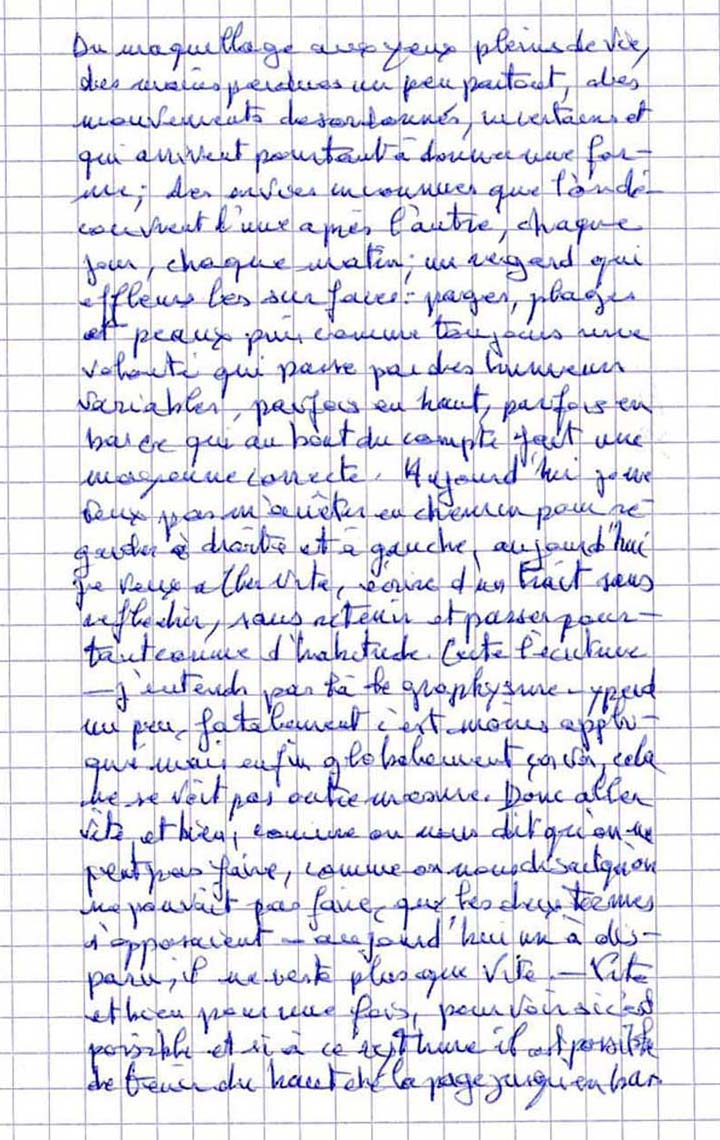 Du maquillage aux yeux pleins de vie,
des mains perdues un peu partout, des
mouvements désordonnés, incertains et
qui arrivent pourtant à donner une for-
me; des envies inconnues que l'on dé-
couvrent l'une après l'autre, chaque
jour, chaque matin; un regard qui
effleure les surfaces: pages, plages
et peaux puis comme toujours une
volonté qui passe par des humeurs
variables, parfois en haut, parfois en
bas ce qui au bout du compte fait une
moyenne correcte. Aujourd'hui je ne
veux pas m'arrêter en chemin pour re-
garder à droite et à gauche, aujourd'hui
je veux aller vite, écrire d'un trait sans
réfléchir, sans retenir et passer pour-
tant comme d'habitude. Certe l'écriture
— j'entends par là le graphysme – y perd
un peu, fatalement c'est moins appli-
qué mais enfin globalement ça va, cela
ne se voit pas outre mesure. Donc aller
vite et bien, comme on nous dit qu'on ne
peut pas faire, comme on nous disait qu'on
ne pouvait pas faire, que les deux termes
s'opposaient – aujourd'hui un à dis-
paru, il ne reste plus que vite. — Vite
et bien pour une fois, pour voir si c'est
possible et si à ce rythme il est possible
de tenir du haut de la page jusqu'en bas